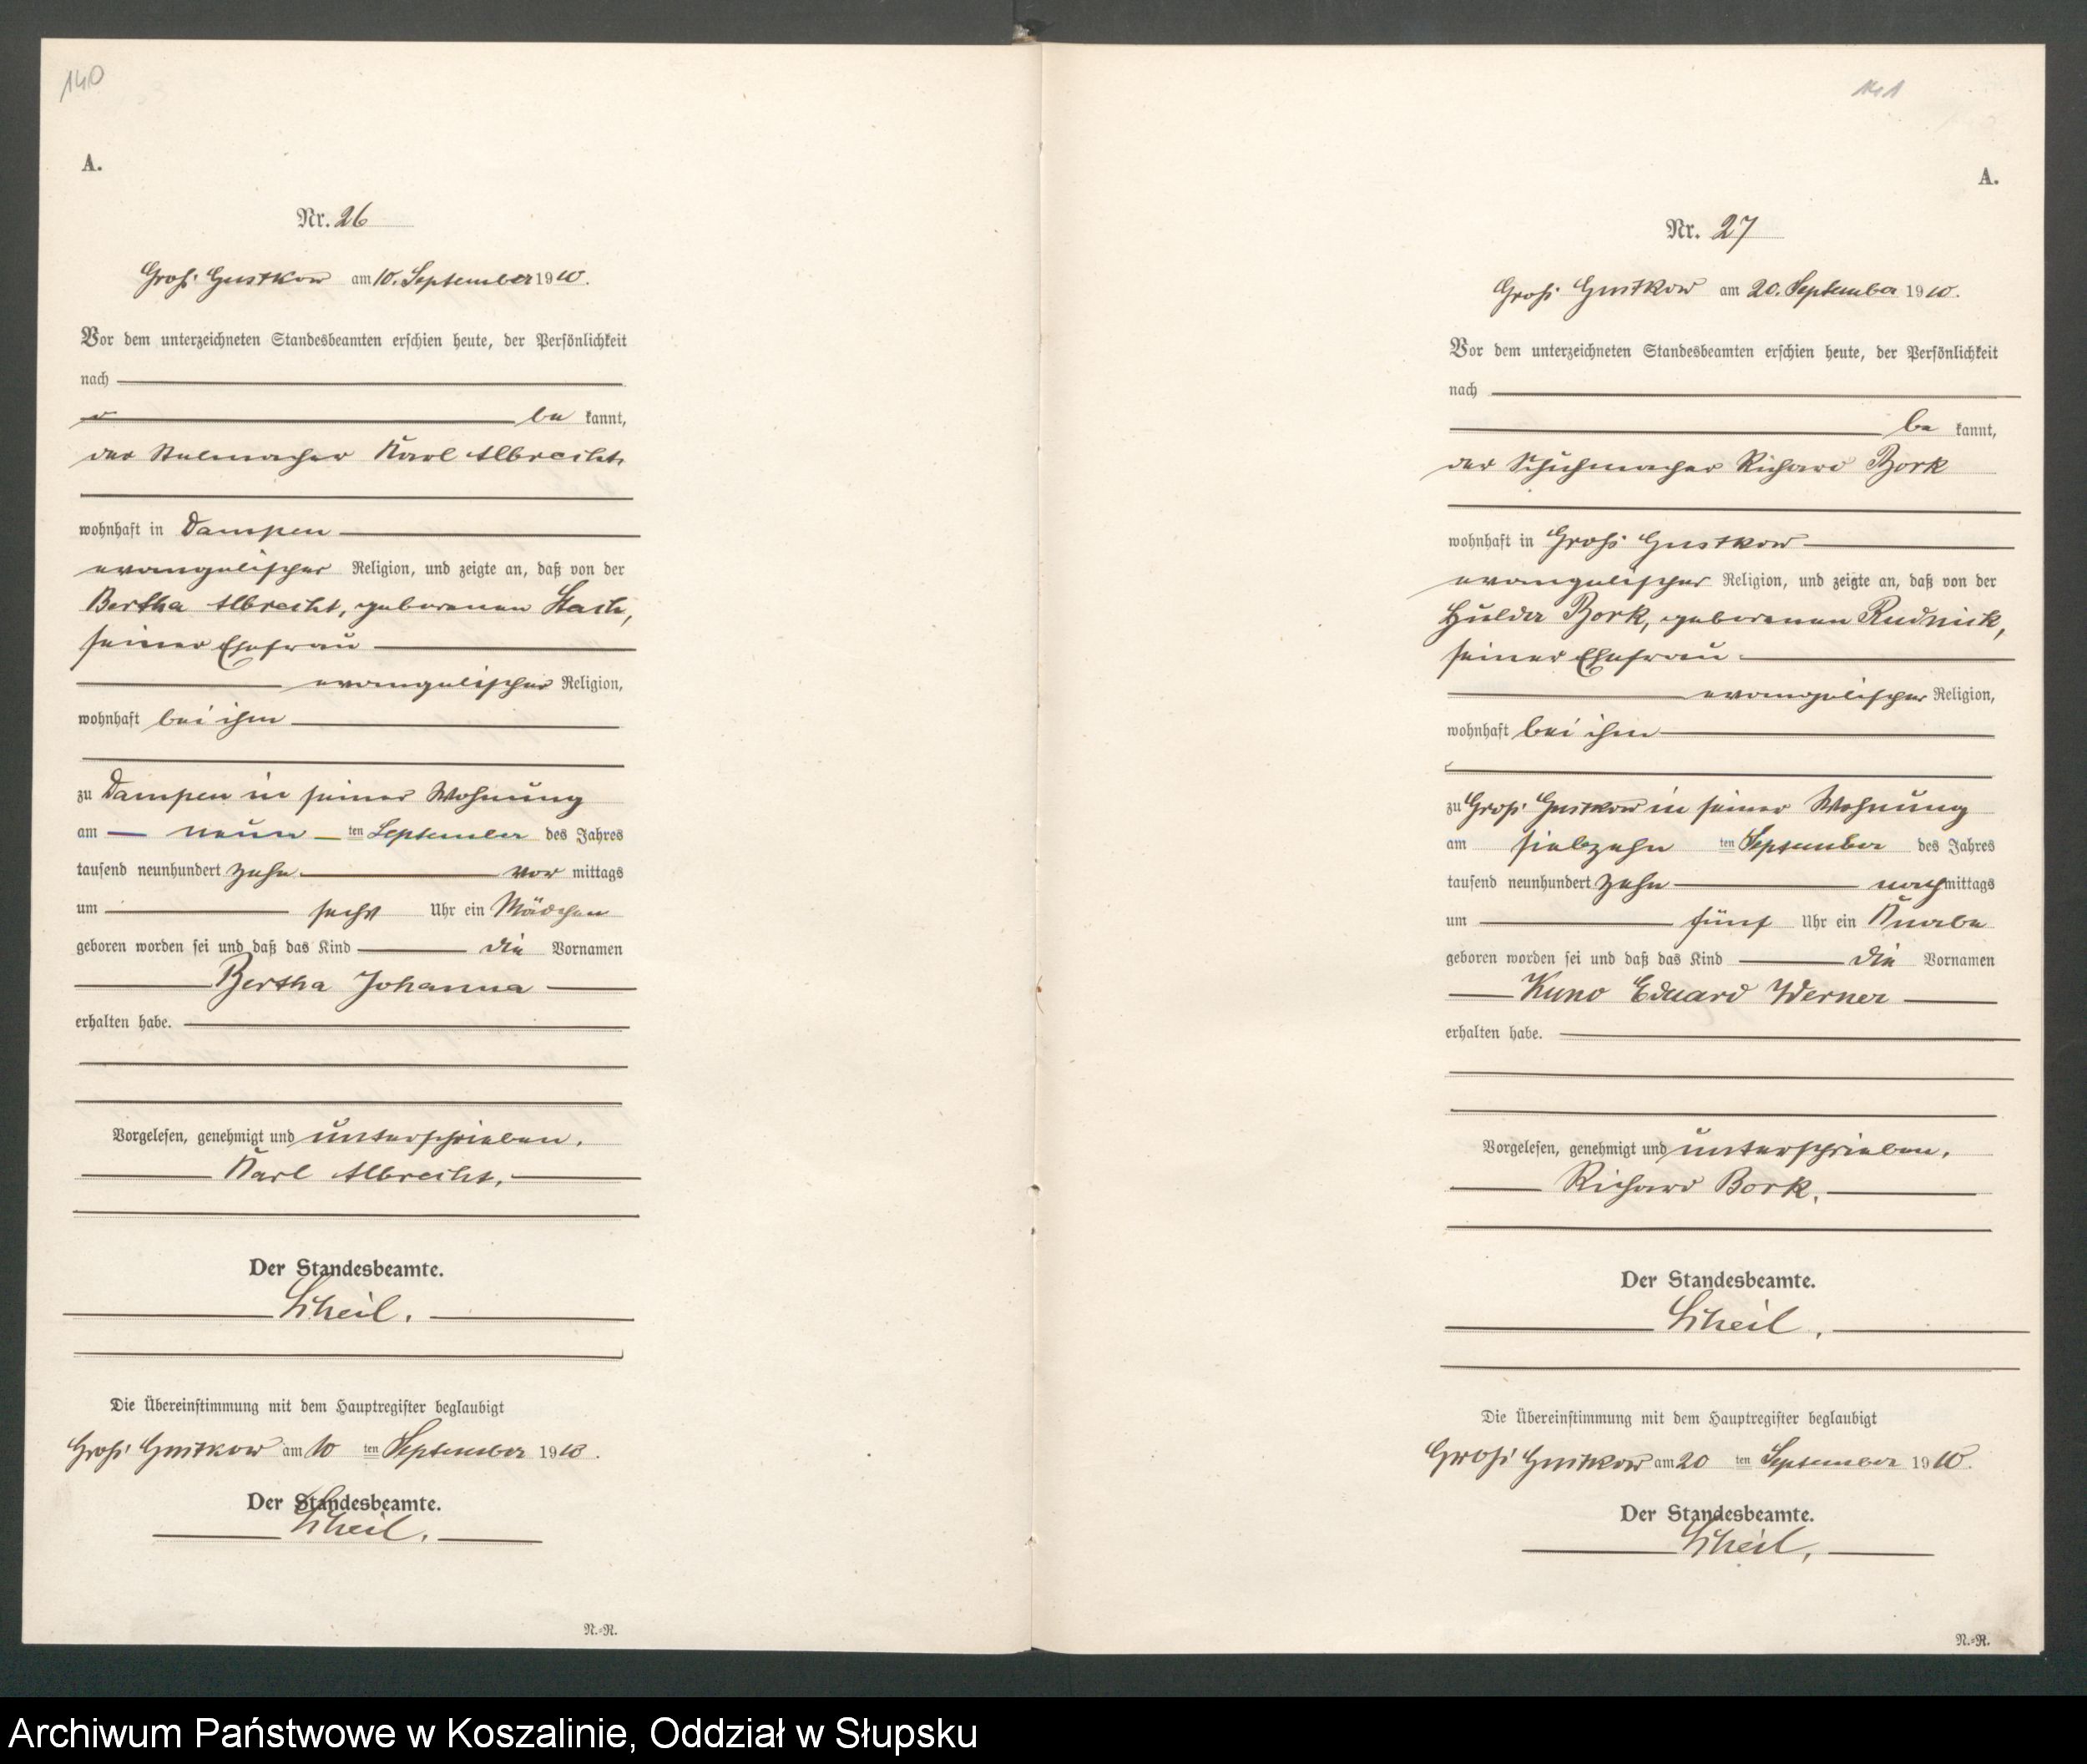 140
A.
Nr. 26
Groß Gustkow am 10. September 1910.
Vor dem unterzeichneten Standesbeamten erschien heute, der Persönlichkeit
nach
be kannt,
der Stellmacher Karl Albrecht
wohnhaft in Dampen
evangelischer Religion, und zeigte an, daß von der
Bertha Albrecht, geborenen Stach,
seiner Ehefrau
evangelischer Religion,
wohnhaft bei ihm
zu Dampen in seiner Wohnung
am neun ten September des Jahres
tausend neunhundert zehn vor mittags
um sechs Uhr ein Mädchen
geboren worden sei und daß das Kind die Vornamen
Bertha Johanna
erhalten habe.
Vorgelesen, genehmigt und unterschrieben.
Karl Albrecht.
Der Standesbeamte.
Scheil.
Die Übereinstimmung mit dem Hauptregister beglaubigt
Groß Gustkow am 10 ten September 1910.
Der Standesbeamte.
Scheil.
N.-R.
141
A.
Nr. 27
Groß Gustkow am 20. September 1910.
Vor dem unterzeichneten Standesbeamten erschien heute, der Persönlichkeit
nach
be kannt,
der Schuhmacher Richard Bork
wohnhaft in Groß Gustkow
evangelischer Religion, und zeigte an, daß von der
Hulda Bork, geborenen Rudnick,
seiner Ehefrau
evangelischer Religion,
wohnhaft bei ihm
zu Groß Gustkow in seiner Wohnung
am siebzehn ten September des Jahres
tausend neunhundert zehn nachmittags
um fünf Uhr ein Knabe
geboren worden sei und daß das Kind die Vornamen
Kuno Eduard Werner
erhalten habe.
Vorgelesen, genehmigt und unterschrieben.
Richard Bork.
Der Standesbeamte.
Scheil.
Die Übereinstimmung mit dem Hauptregister beglaubigt
Groß Gustkow am 20 ten September 1910.
Der Standesbeamte.
Scheil.
N.-R.
Archiwum Państwowe w Koszalinie, Oddział w Słupsku